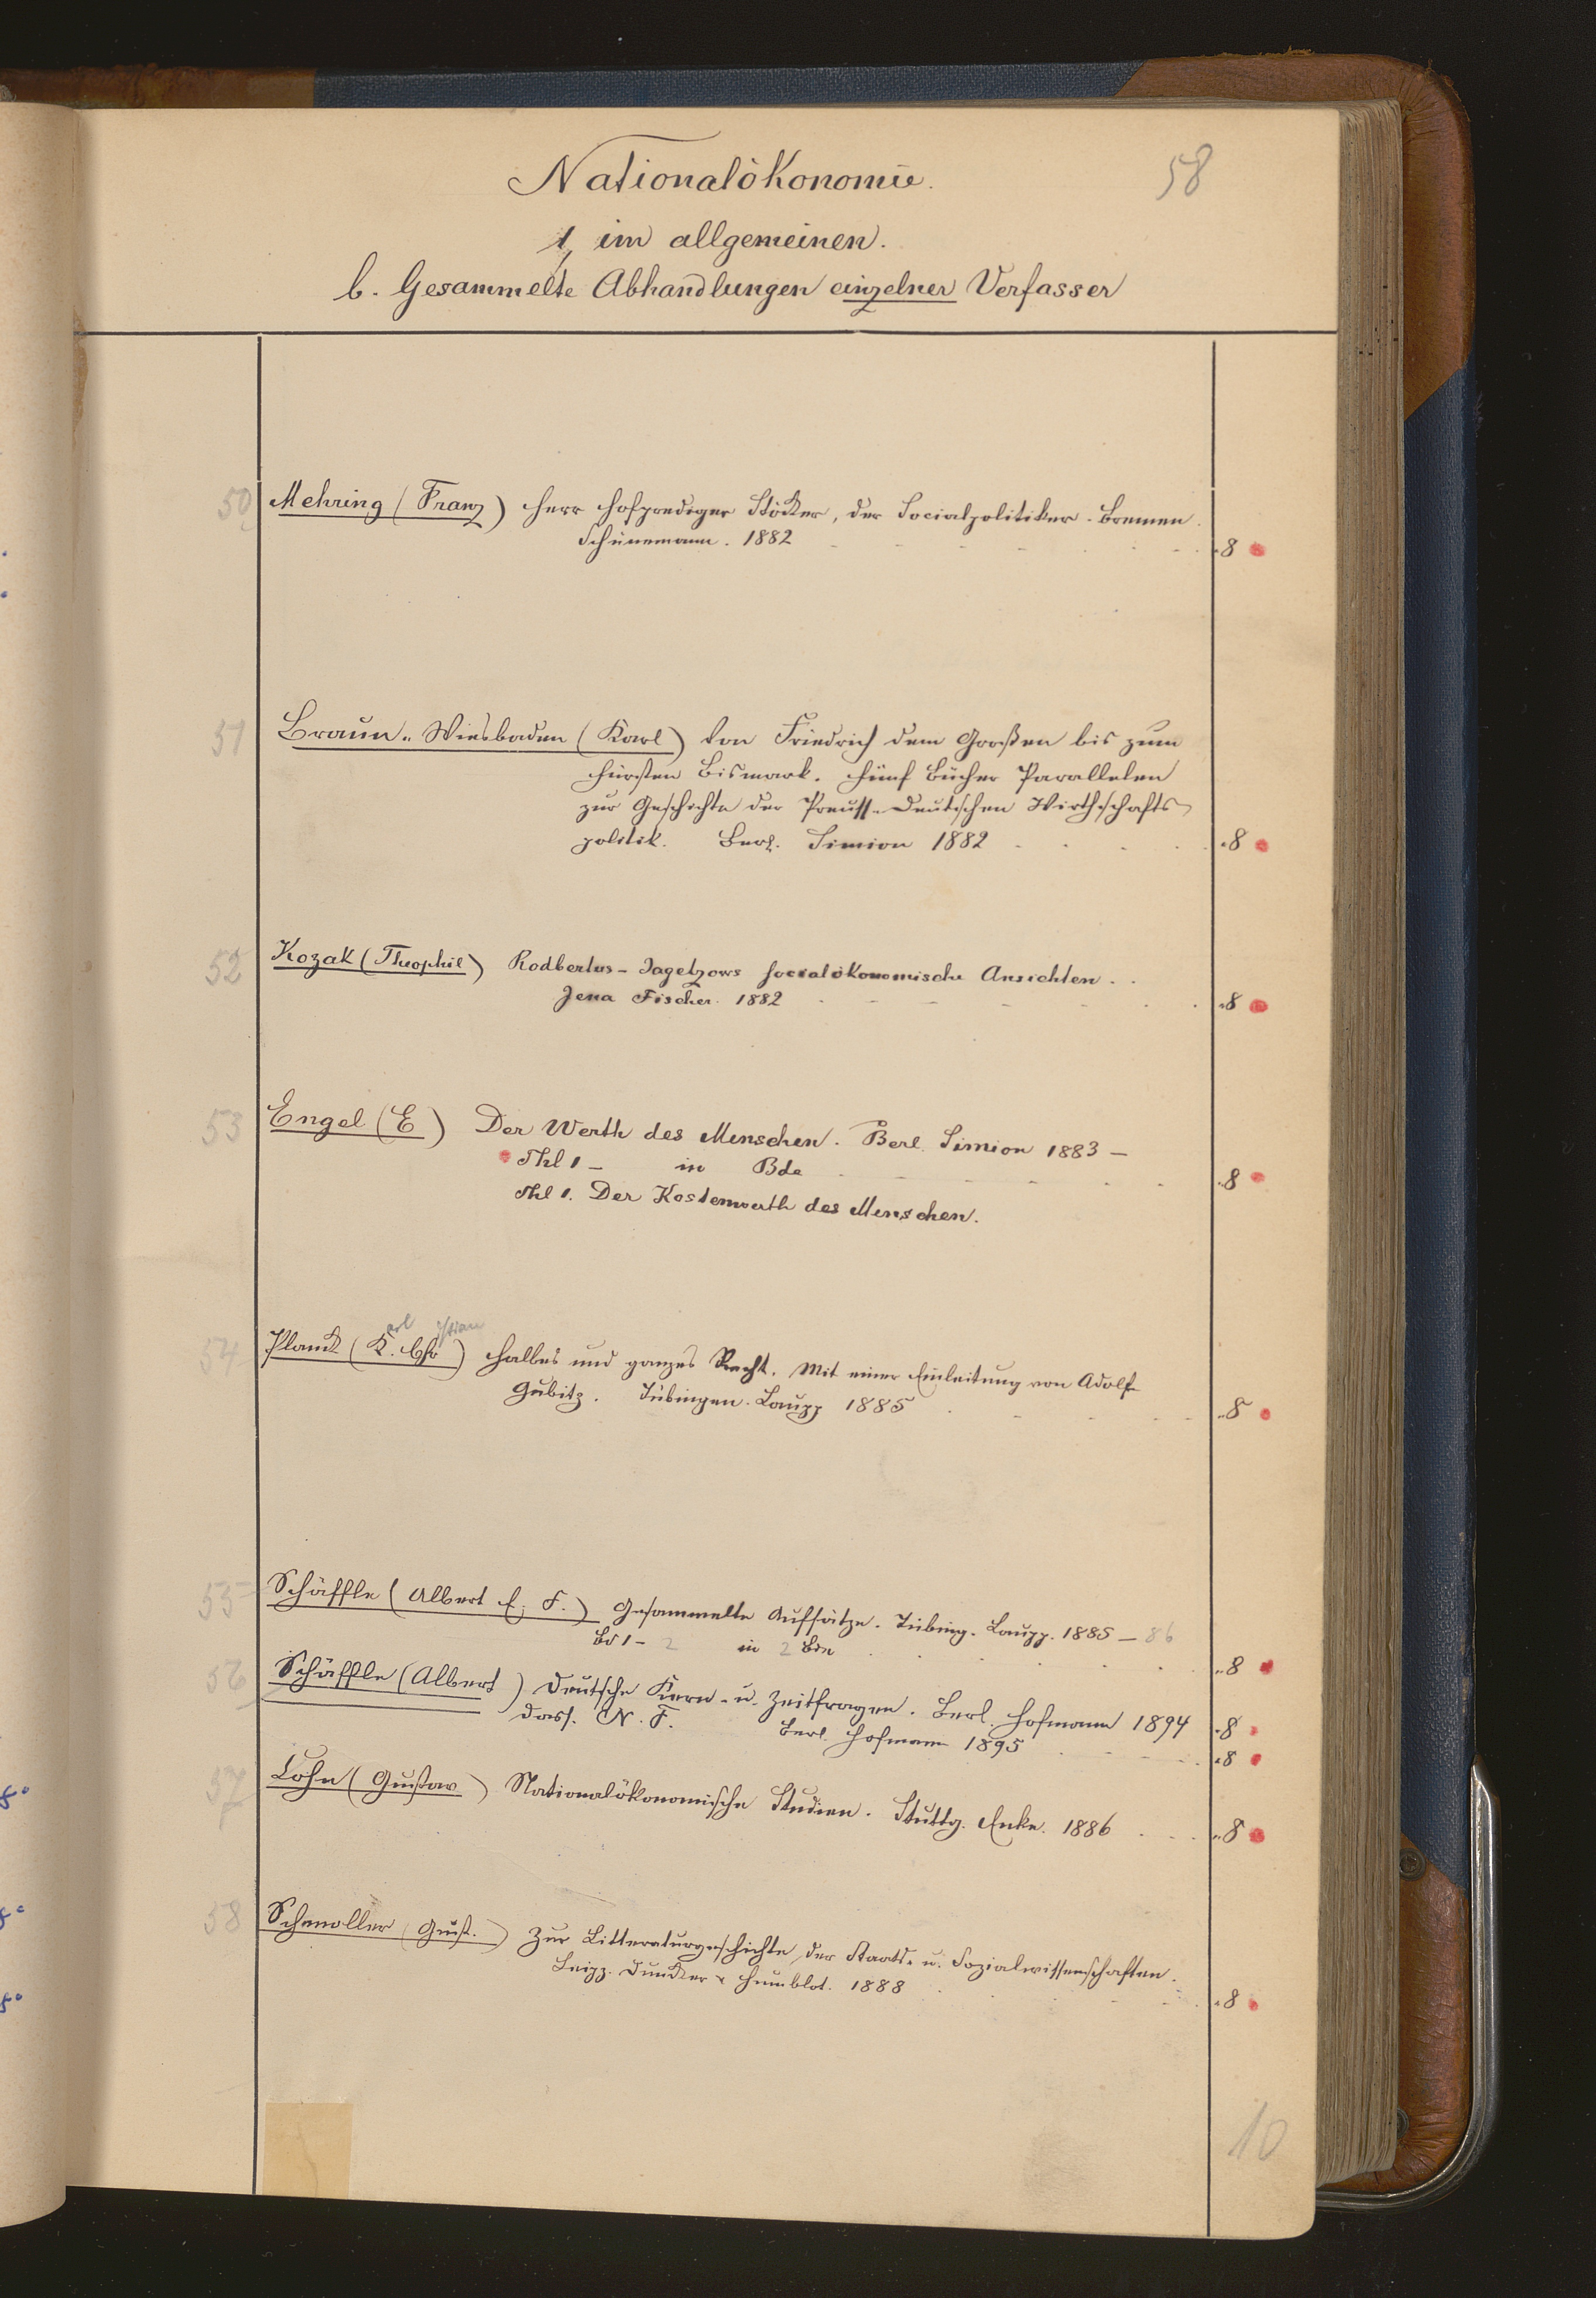 58
Nationalökonomie.
1, im allgemeinen.
b. Gesammelte Abhandlungen einzelner Verfasser
50 Mehring (Franz) Herr Hofprediger Stöcker, der Socialpolitiker. Bremen.
Schünemann. 1882 8
51 Braun-Wiesbaden (Karl) Von Friedrich dem Großen bis zum
Fürsten Bismark. Fünf Bücher Parallelen
zur Geschichte der Preuss.-Deutschen Wirthschafts-
politik. Berl. Simion 1882 8
52 Kozak (Theophil) Rodbertus-Jagetzows socialökonomische Ansichten.
Jena Fischer. 1882 8
53 Engel (E) Der Werth des Menschen. Berl. Simion 1883 –
Thl 1 – in Bde 8
Thl 1. Der Kostenwerth des Menschen.
54 Planck (Karl Christian) Halbes und ganzes Recht. Mit einer Einleitung von Adolf
Gubitz. Tübingen. Laupp 1885 8
55 Schäffle (Albert E. F.) Gesammelte Aufsätze. Tübing. Laupp. 1885 – 86
Bd 1 – 2 in 2 Bde 8
56 Schäffle (Albert) Deutsche Kern- u. Zeitfragen. Berl. Hofmann 1894 8
Dass. N. F. Berl. Hofmann 1895 8
57 Cohn (Gustav) Nationalökonomische Studien. Stuttg. Enke. 1886 8
58 Schmoller (Gust.) Zur Litteraturgeschichte der Staats- u. Sozialwissenschaften.
Leipz. Duncker & Humblot. 1888 8
10